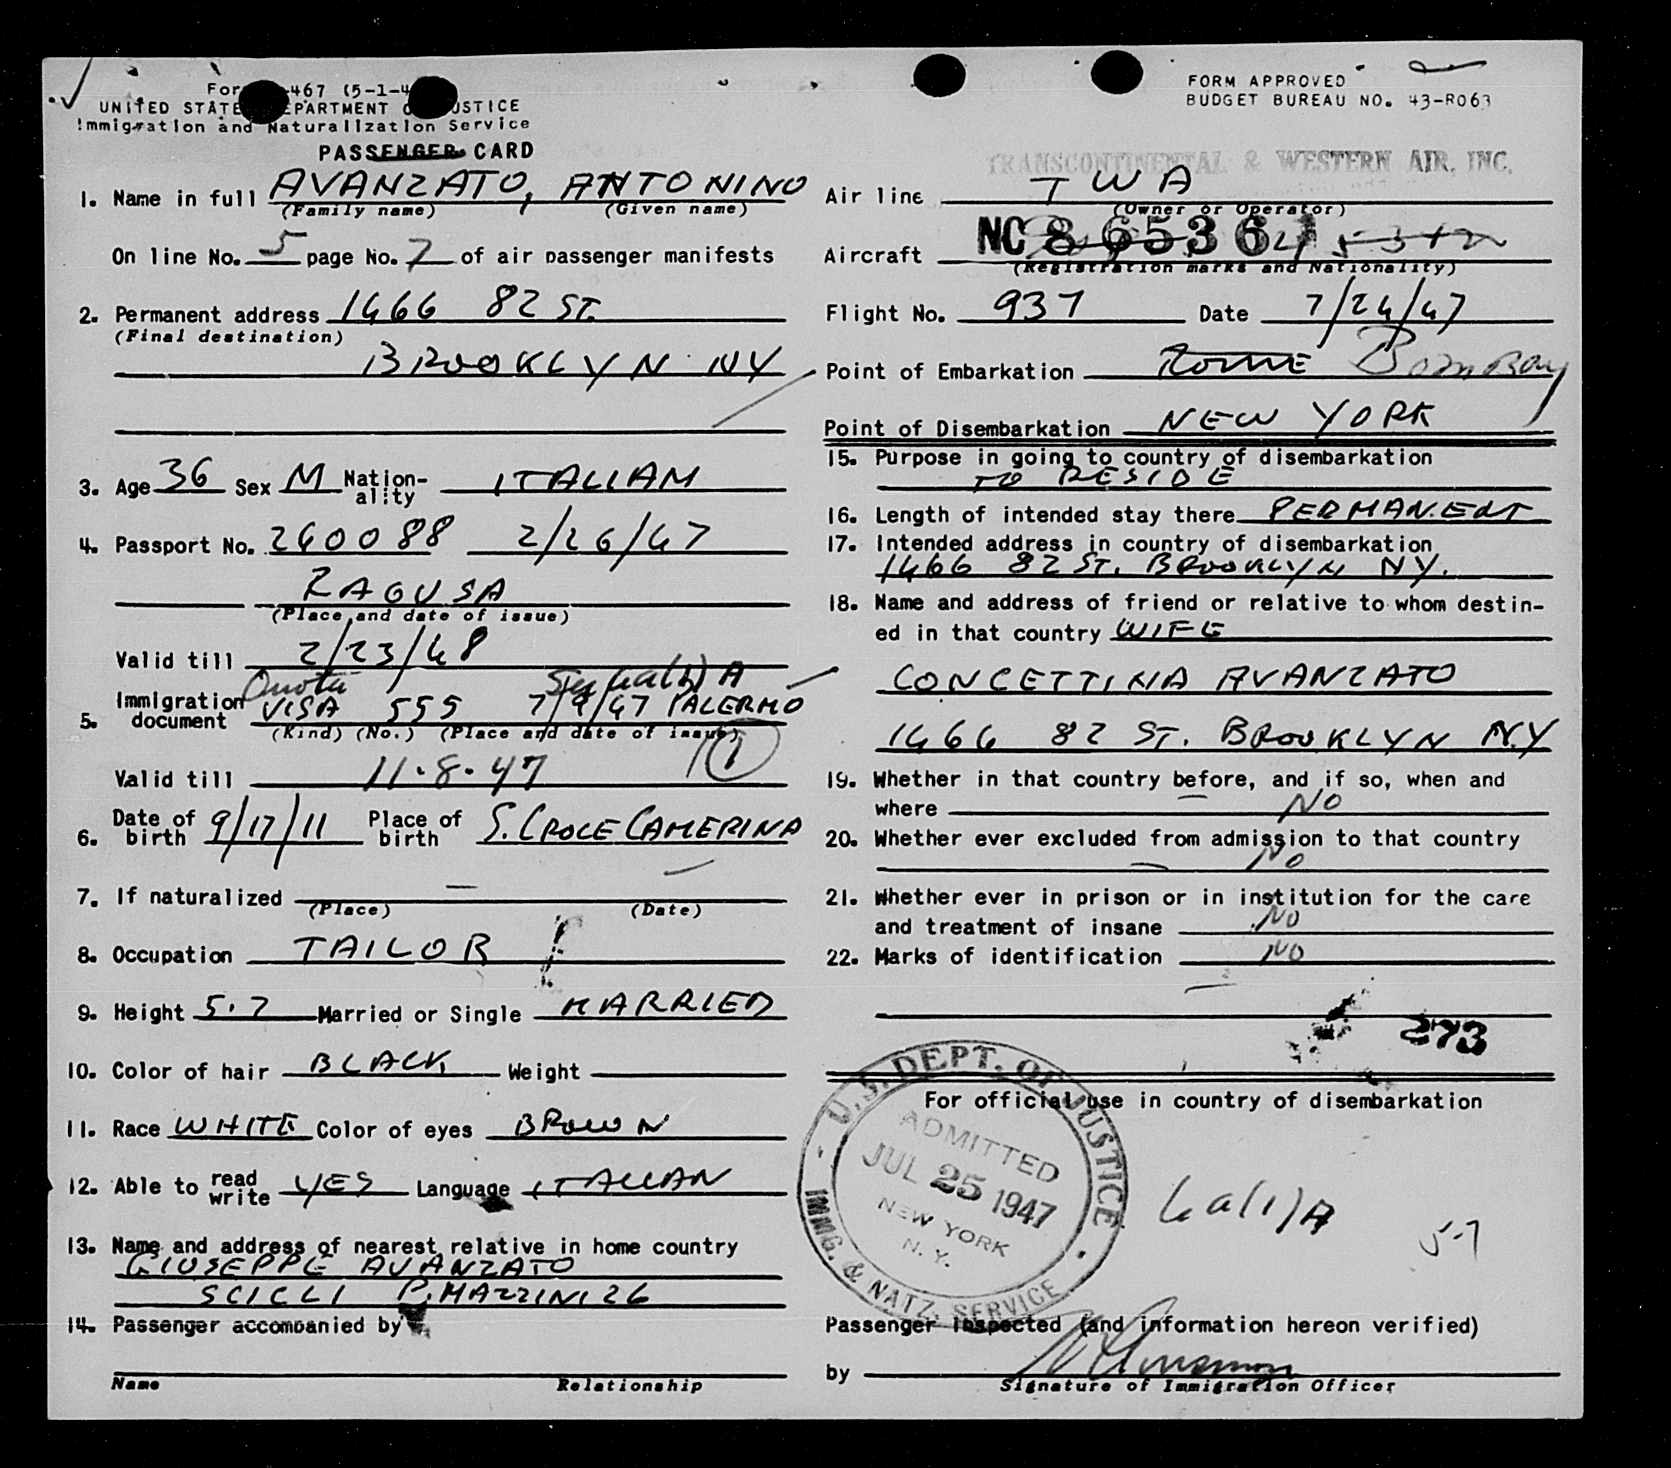 UNITED STATE EPARTMENT O USTICE
Immigration and Naturalization Service
PASSENGER CARD
FORM APPROVED
BUDGET BUREAU NO. 43-R063
TRANSCONTINENTAL & WESTERN AIR, INC.
1. Name in full AVANZATO, ANTONINO
(Family name) (Given name)
On line No. 5 page No. 7 of air passenger manifests
2. Permanent address 1466 82 ST.
(Final destination)
BROOKLYN NY
3. Age 36 Sex M Nation-ality ITALIAN
4. Passport No. 260088 2/26/47
RAGUSA
(Place and date of issue)
Valid till 2/23/48
Quota
5. Immigration document VISA 555 7/9/47 PALERMO
(Kind) (No.) (Place and date of issue)
1
Valid till 11.8.47
6. Date of birth 9/17/11 Place of birth S. CROCE CAMERINA
7. If naturalized —
(Place) (Date)
8. Occupation TAILOR
9. Height 5.7 Married or Single MARRIED
10. Color of hair BLACK Weight
11. Race WHITE Color of eyes BROWN
12. Able to read write YES Language ITALIAN
13. Name and address of nearest relative in home country
GIUSEPPE AVANZATO
SCICLI P. MAZZINI 26
14. Passenger accompanied by
Name Relationship
Air line TWA
(Owner or Operator)
Aircraft NC 86536
(Registration marks and Nationality)
Flight No. 937 Date 7/24/47
Point of Embarkation ROME Bombay
Point of Disembarkation NEW YORK
15. Purpose in going to country of disembarkation
TO RESIDE
16. Length of intended stay there PERMANENT
17. Intended address in country of disembarkation
1466 82 ST. BROOKLYN NY.
18. Name and address of friend or relative to whom destin-
ed in that country WIFE
CONCETTINA AVANZATO
1466 82 ST. BROOKLYN N.Y
19. Whether in that country before, and if so, when and
where NO
20. Whether ever excluded from admission to that country
NO
21. Whether ever in prison or in institution for the care
and treatment of insane NO
22. Marks of identification NO
273
For official use in country of disembarkation
U.S. DEPT. OF JUSTICE
ADMITTED
JUL 25 1947
NEW YORK
N. Y.
IMMG. & NATZ. SERVICE
6a(1)A
5-7
Passenger inspected (and information hereon verified)
by
Signature of Immigration Officer